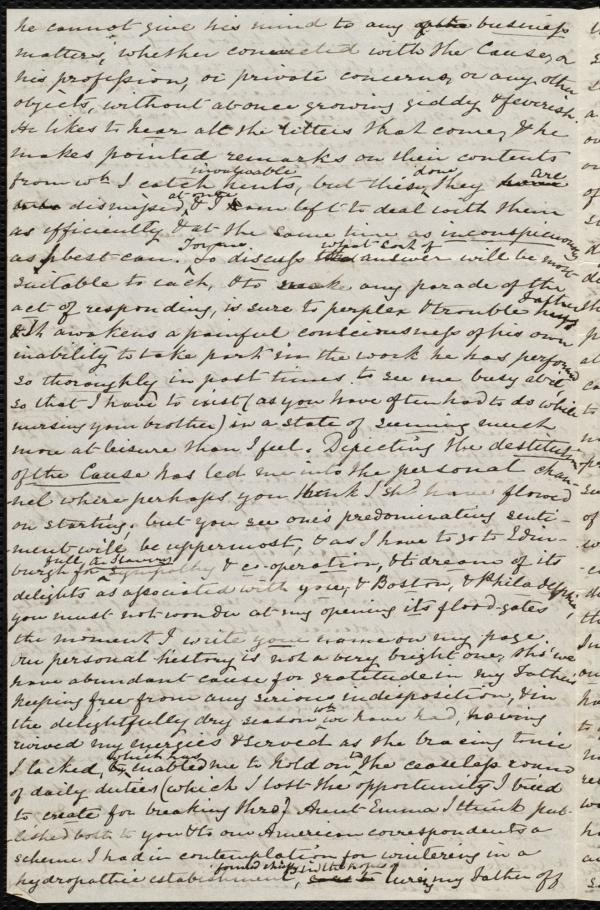 he cannot give his mind to any business
matters, whether connected with the Cause, or
his profession, or private concerns, or any other
objects, without at once growing giddy & feverish
He likes to hear all the letters that come, & he
makes pointed remarks on their contents
from wh I catch invaluable hints, but this done, they are
dismissed at once, & I am left to deal with them
as efficiently & at the same time as inconspicuously
as I best can. To discuss what sort of answer will be most
suitable to each, & to make any parade of the
act of responding, is sure to perplex & trouble Father
& it awakens a painful consciousness of his own
inability to take part in the work he has performed
so thoroughly in past times to see me busy abt it,
so that I have to rest (as you have often had to do while
nursing your brother) in a state of seeming much
more at leisure than I feel. Depicting the destitution
of the Cause has led me into the personal chan-
nel where perhaps you think I shd have flowed
on starting, but you see one's predominating senti-
ment will be uppermost, & as I have to go to Edin-
burgh for sympathy & co-operation, & to dream of its
delights as associated with you, & Boston, & Philadelphia,
you must not wonder at my opening its flood-gates
the moment I write your name on my page.
Our personal history is not a very bright one, tho' we
have abundant cause for gratitude in my Father's
keeping free from any serious indisposition, & in
the delightfully dry season wh we have had, having
revived my energies & served as the bracing tonic
I lacked, which has enabled me to hold on to the ceaseless round
of daily duties (which I lost the opportunity I tried
to create for breaking thro'). Aunt Emma I think pub-
lished both to you & to our American correspondents a
scheme I had in contemplation for wintering in a
hydropathic establishment, formed chiefly in the hopes of luring my Father off